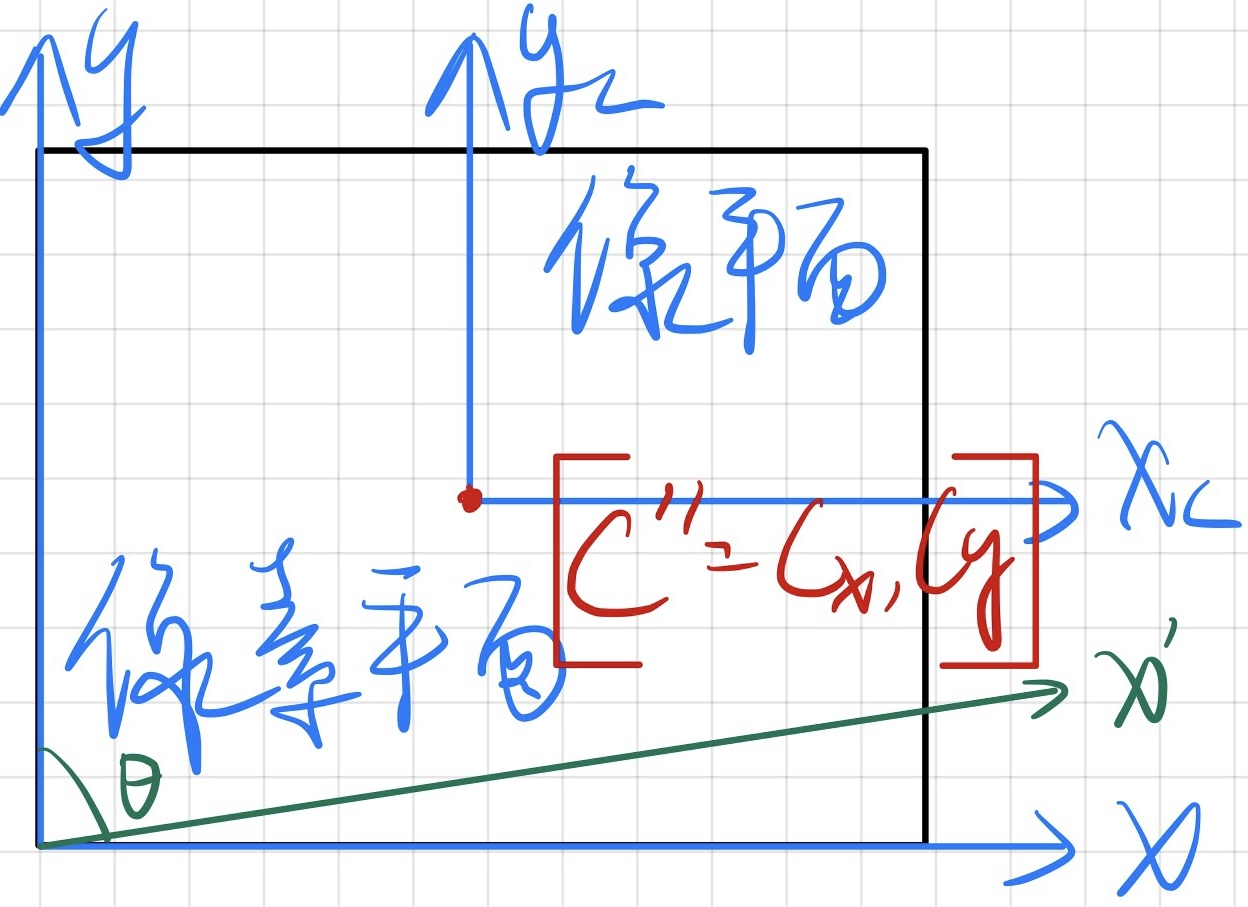 y
yc
像平面
xc
C''=Cx,Cy
像素平面
x'
θ
x